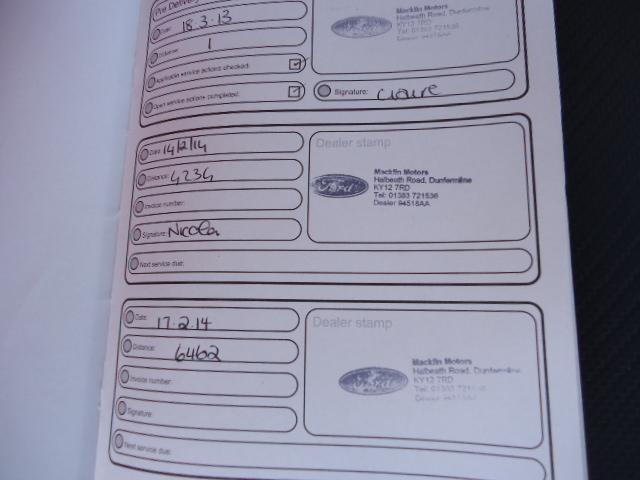 Pre Delivery
Date: 18.3.13
Distance: 1
Applicable service actions checked:
Open service actions completed:
Ford
Macklin Motors
Halbeath Road, Dunfermline
KY12 7RD
Tel: 01383 721536
Dealer 94518AA
Signature: Claire
Date: 14/2/14
Distance: 4234
Invoice number:
Signature: Nicola
Next service due:
Dealer stamp
Ford
Macklin Motors
Halbeath Road, Dunfermline
KY12 7RD
Tel: 01383 721536
Dealer 94518AA
Date: 17.2.14
Distance: 6462
Invoice number:
Signature:
Next service due:
Dealer stamp
Ford
Macklin Motors
Halbeath Road, Dunfermline
KY12 7RD
Tel: 01383
Dealer 94518AA